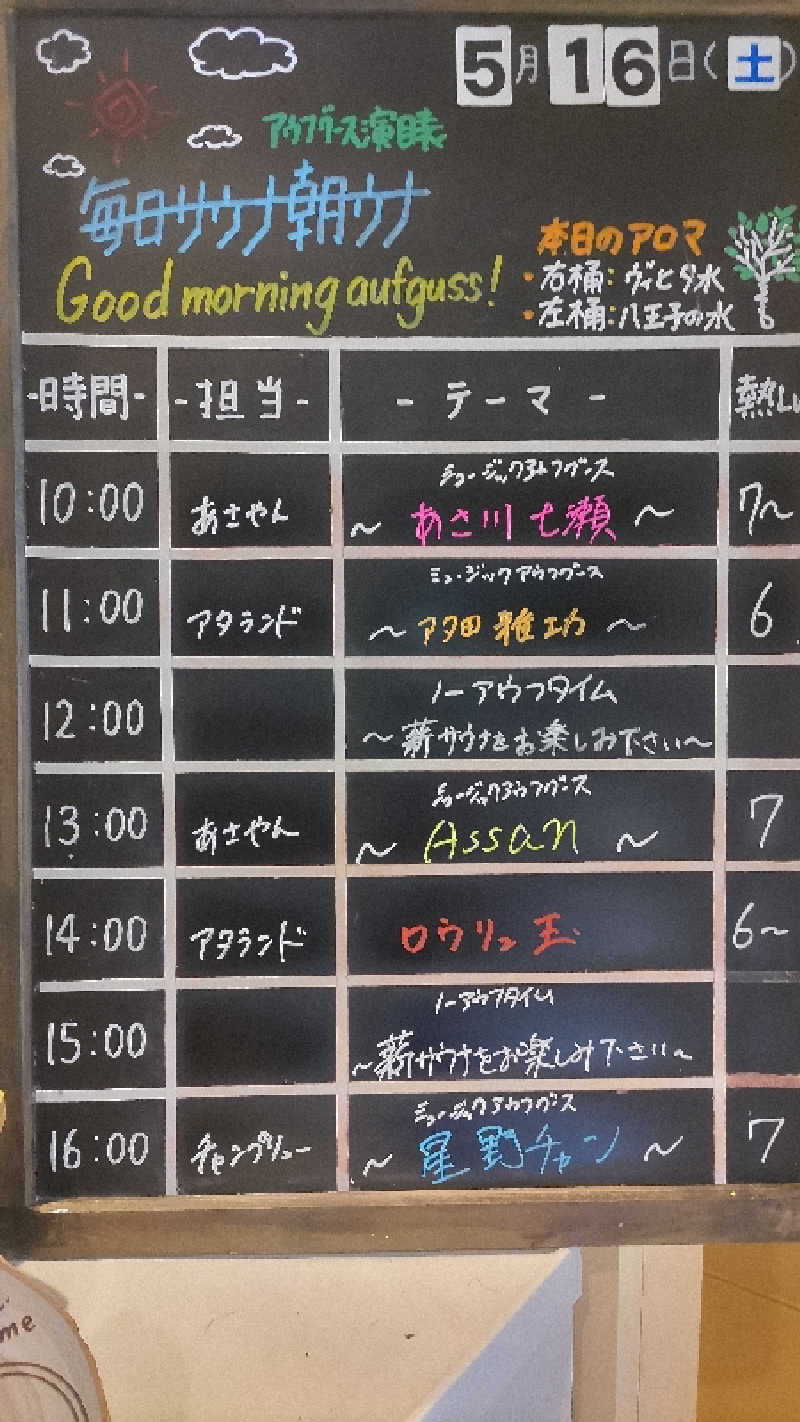 5月16日(土)
アウフグース演目表
毎日サウナ朝ウナ
Good morning aufguss!
本日のアロマ
・右桶：ヴィヒタ水
・左桶：八王子の水
-時間- -担当- -テーマ- 熱し
10:00 あさやん ミュージックアウフグース 7~
~あさ川七瀬~
11:00 アタランド ミュージックアウフグース 6
~アタ田雅功~
12:00 ノーアウフタイム
~薪サウナをお楽しみ下さい~
13:00 あさやん ミュージックアウフグース 7
~Assan~
14:00 アタランド ロウリュ玉 6~
15:00 ノーアウフタイム
~薪サウナをお楽しみ下さい~
16:00 チャンプリュー ミュージックアウフグース 7
~星野チャン~
me